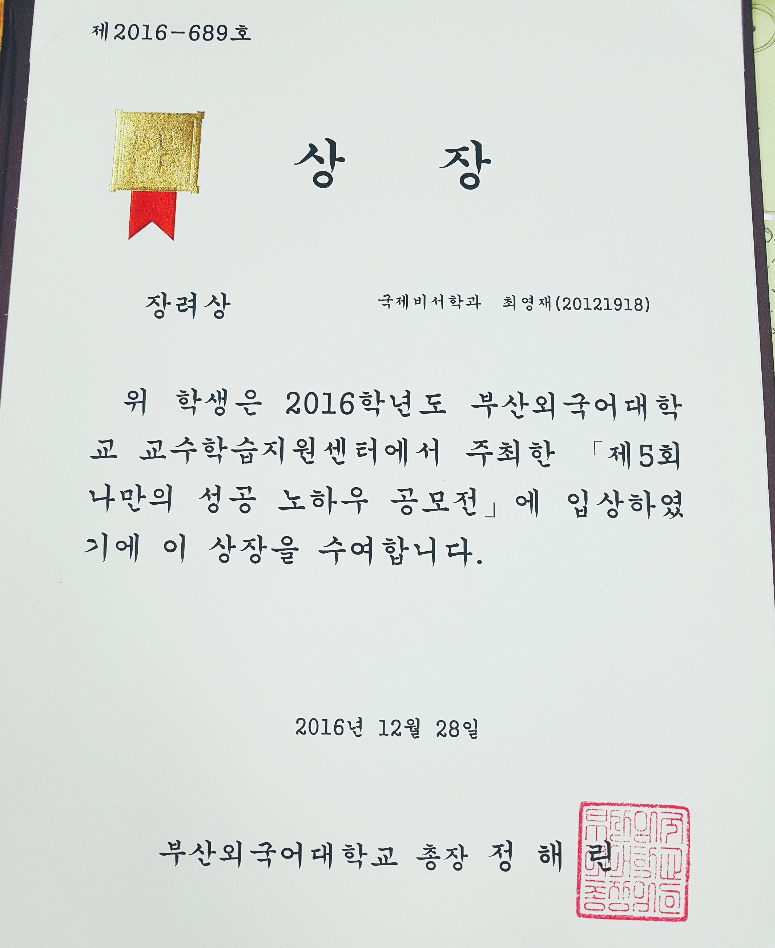 제2016-689호
상 장
장려상 국제비서학과 최영재(20121918)
위 학생은 2016학년도 부산외국어대학
교 교수학습지원센터에서 주최한 「제5회
나만의 성공 노하우 공모전」에 입상하였
기에 이 상장을 수여합니다.
2016년 12월 28일
부산외국어대학교 총장 정 해 린